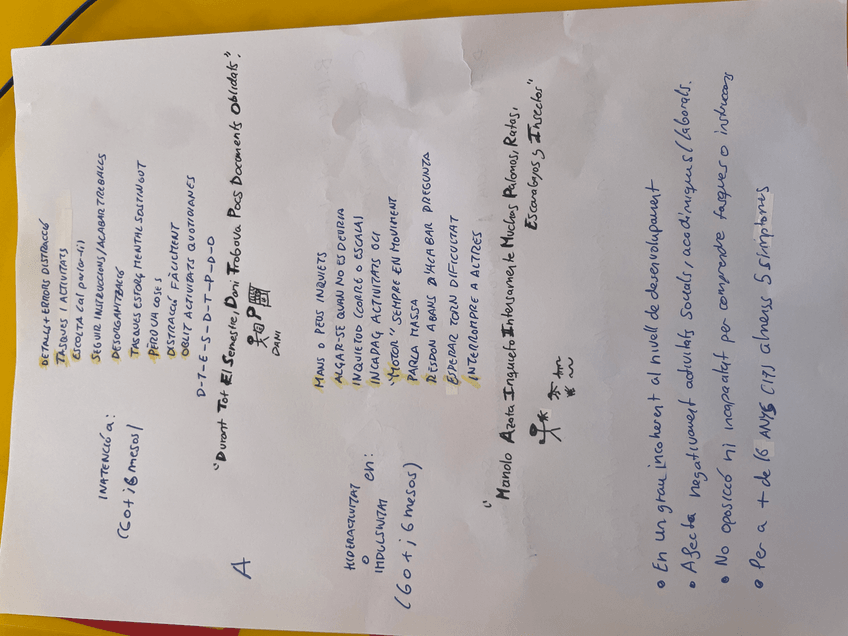 INATENCIÓ a:
(6 o + i 6 mesos)
DETALLS + ERRORS DISTRACCIÓ
TASQUES I ACTIVITATS
ESCOLTA (al parlar-li)
SEGUIR INSTRUCCIONS/ACABAR TREBALLS
DESORGANITZACIÓ
TASQUES ESFORÇ MENTAL SOSTINGUT
PERD UA COSES
DISTRACCIÓ FÀCILMENT
OBLIT ACTIVITATS QUOTIDIANES
D-T-E-S-D-T-P-D-O
"Durant Tot El Semestre, Dani Trobava Pocs Documents Oblidats".
DANI
A
HIPERACTIVITAT
O
IMPULSIVITAT en:
(6 o + i 6 mesos)
MANS O PEUS INQUIETS
ALÇAR-SE QUAN NO ES DEURIA
INQUIETUD (CORRE O ESCALA)
INCAPAÇ ACTIVITATS OCI
"MOTOR" SEMPRE EN MOVIMENT
PARLA MASSA
RESPON ABANS D'ACABAR PREGUNTA
ESPERAR TORN DIFICULTAT
INTERROMPRE A ALTRES
"Manolo Azota Inquieto Intensamente Muchas Palomas, Ratas,
Escarabajos y Insectos"
• En un grau incoherent al nivell de desenvolupament
• Afecta negativament activitats socials, acadèmiques/laborals.
• No oposicó ni incapacitat per comprendre tasques o instruccions
• Per a + de 16 ANYS (17) almenys 5 símptomes